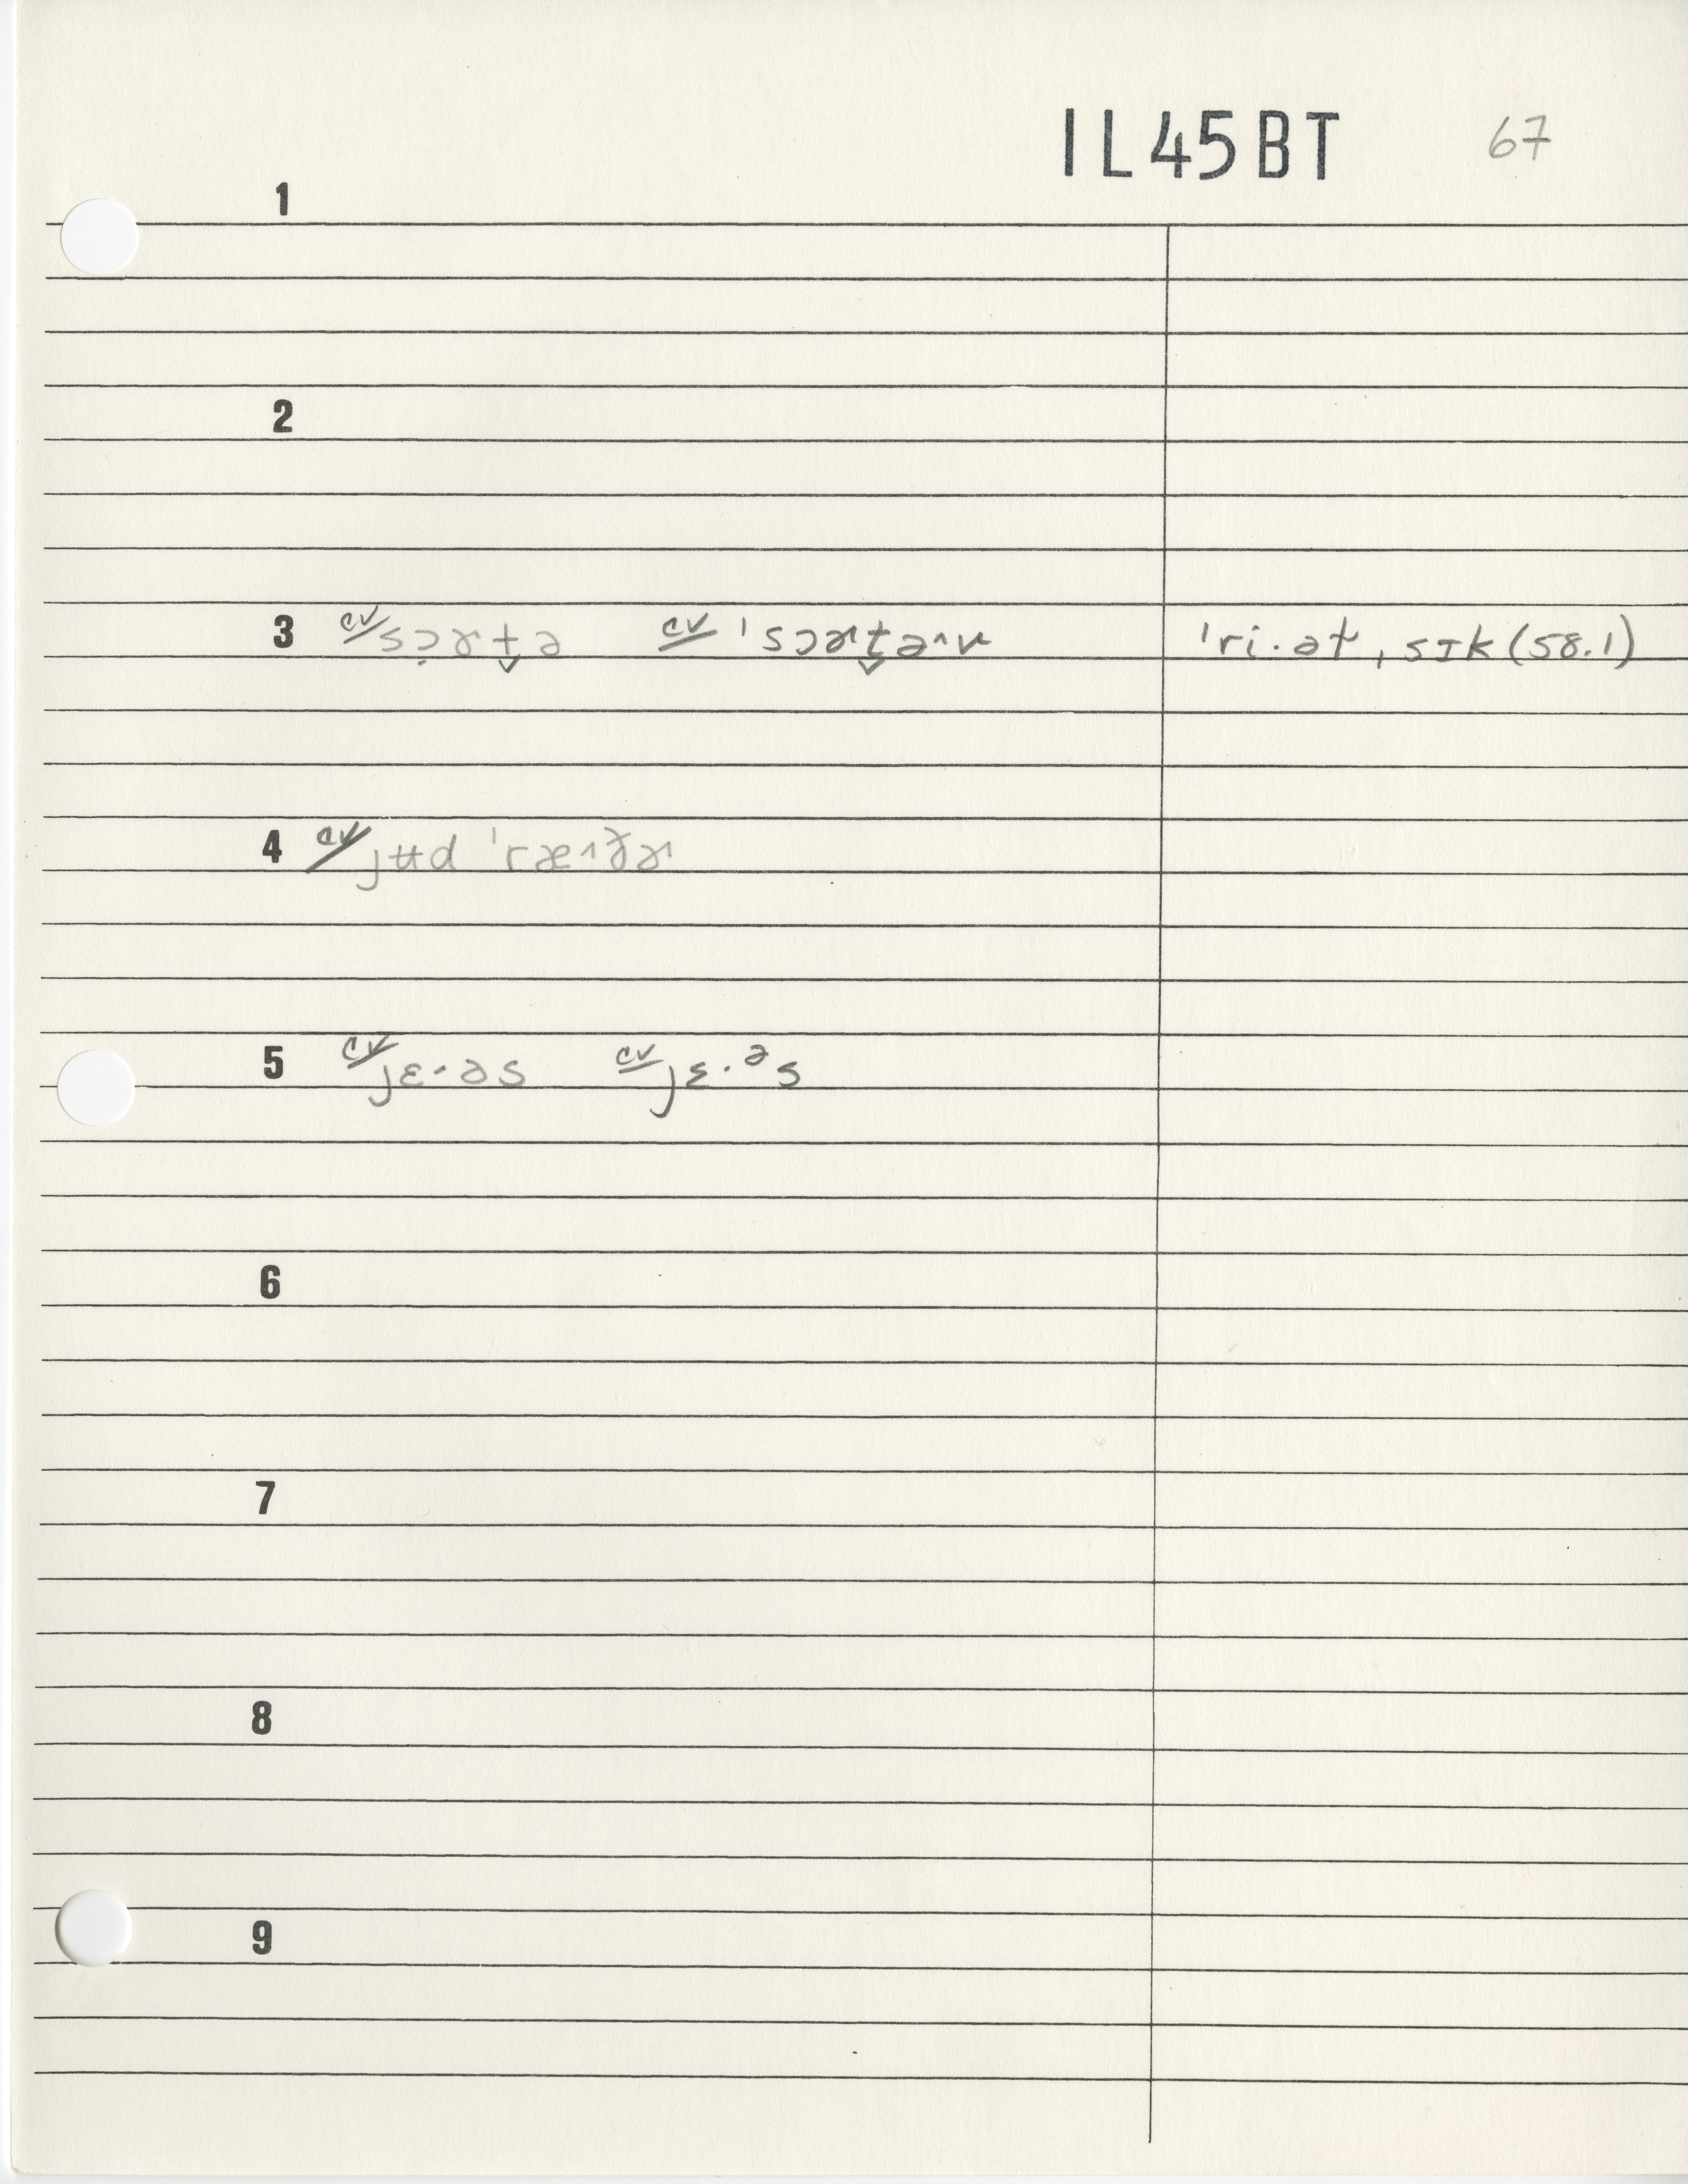 IL45BT 67
1
2
3 cv sɔ̣ɚt̬ə cv ˈsɔɚt̬əv ˈri·ət, sɪk (58.1)
4 cv jʉd ˈræ^ðɚ
5 cv jɛ·əs cv jɛ·ᵊs
6
7
8
9